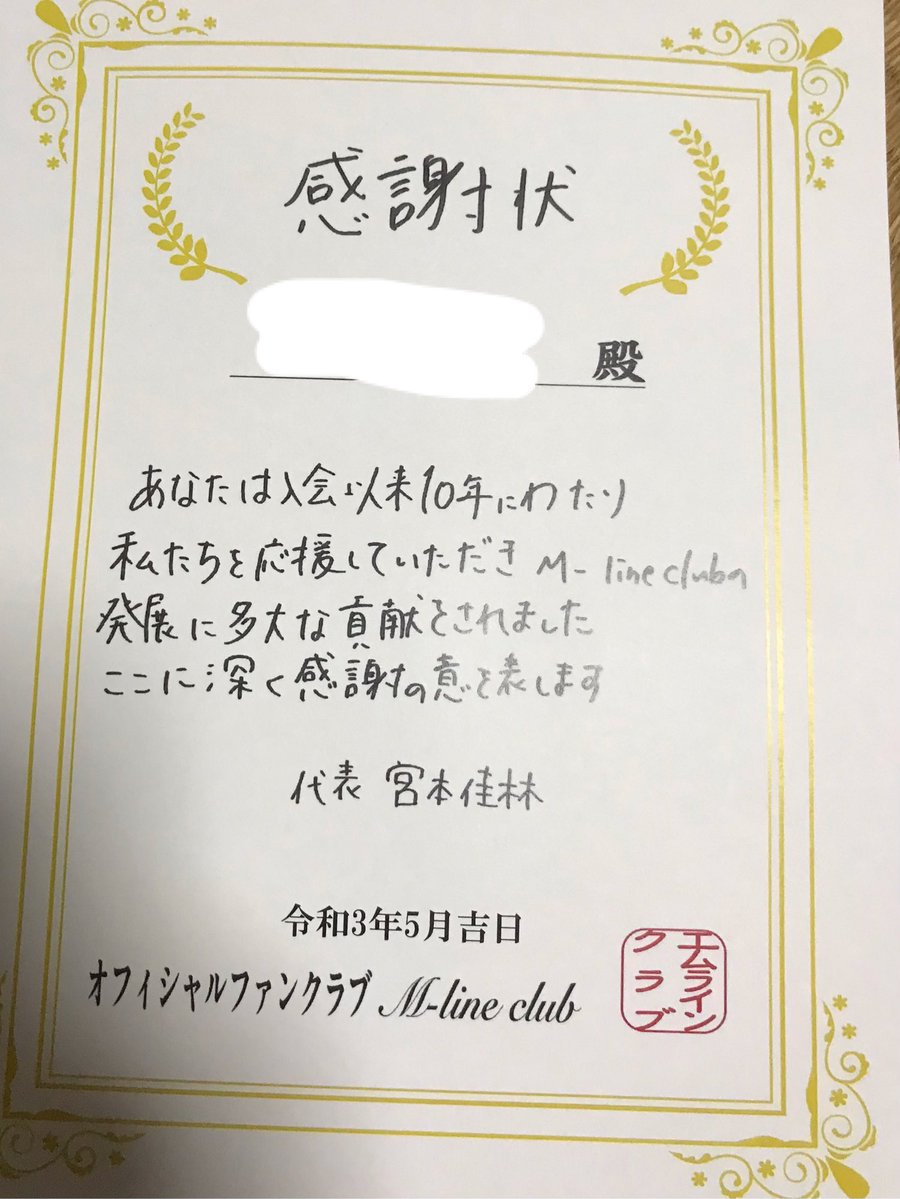 感謝状
殿
あなたは入会以来10年にわたり
私たちを応援していただき M-line clubの
発展に多大な貢献をされました
ここに深く感謝の意を表します
代表 宮本佳林
令和3年5月吉日
オフィシャルファンクラブ M-line club
エムライン
クラブ